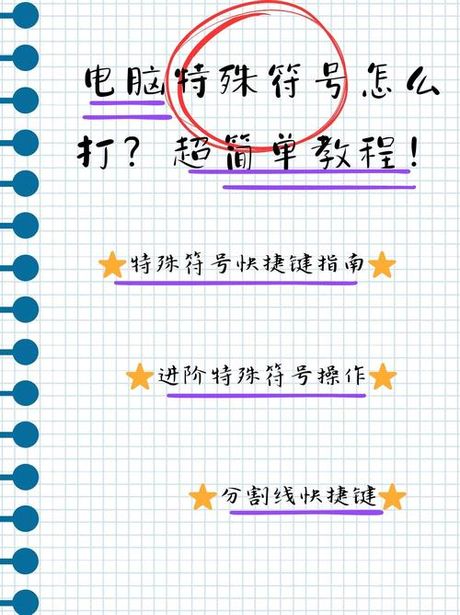 电脑特殊符号怎么
打？超简单教程！
特殊符号快捷键指南
进阶特殊符号操作
分割线快捷键